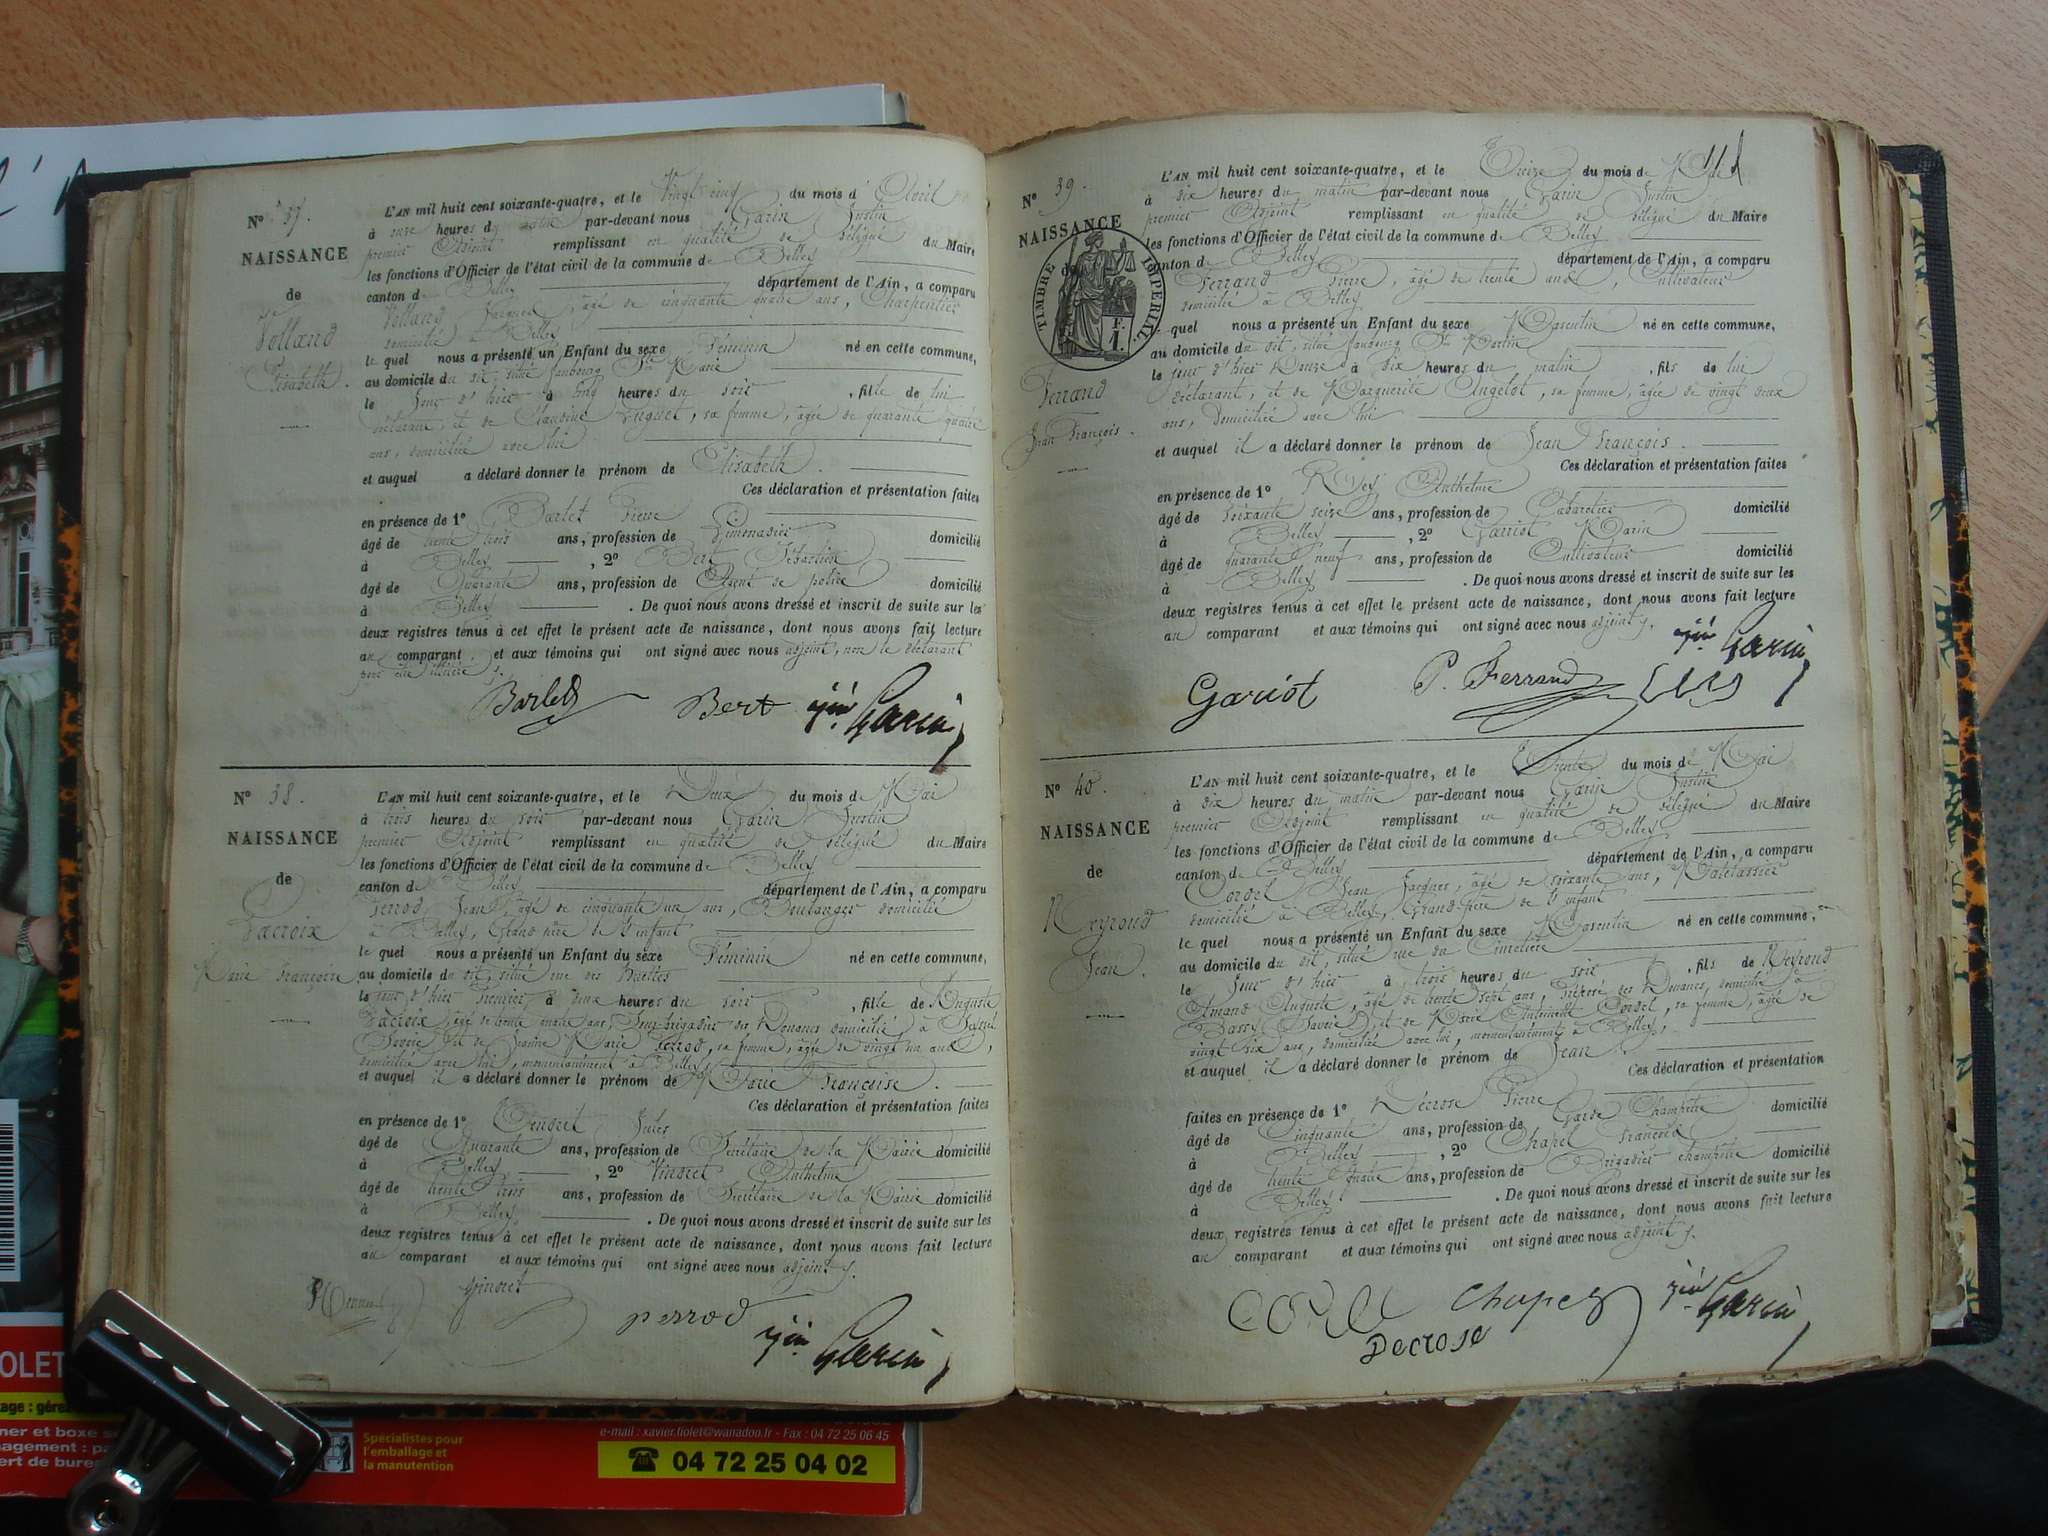 N° 37.
NAISSANCE
de
Volland
Elisabeth.
L'AN mil huit cent soixante-quatre, et le Vingt cinq du mois d'Avril
à onze heures du matin par-devant nous Garin Justin
premier Adjoint remplissant en qualité de délégué du Maire
les fonctions d'Officier de l'état civil de la commune de Belley
canton de Belley département de l'Ain, a comparu
Volland Jacques, âgé de cinquante quatre ans, Charpentier
domicilié à Belley
le quel nous a présenté un Enfant du sexe Féminin né en cette commune,
au domicile du dit, situé faubourg Ste Marie
le Jour d'hier à cinq heures du soir, fille de lui
déclarant, et de Claudine Huguet, sa femme, âgée de quarante quatre
ans, domiciliée avec lui
et auquel a déclaré donner le prénom de Elisabeth.
Ces déclaration et présentation faites
en présence de 1° Barlet Pierre
âgé de trente trois ans, profession de Limonadier domicilié
à Belley, 2° Bert Sébastien
âgé de Quarante ans, profession de Agent de police domicilié
à Belley. De quoi nous avons dressé et inscrit de suite sur les
deux registres tenus à cet effet le présent acte de naissance, dont nous avons fait lecture
au comparant et aux témoins qui ont signé avec nous adjoint, non le déclarant
pour être illitéré
Barlet Bert Jin Garin
N° 38.
NAISSANCE
de
Lacroix
Marie Françoise
L'AN mil huit cent soixante-quatre, et le Deux du mois de Mai
à trois heures du soir par-devant nous Garin Justin
premier Adjoint remplissant en qualité de délégué du Maire
les fonctions d'Officier de l'état civil de la commune de Belley
canton de Belley département de l'Ain, a comparu
Perrod Jean, âgé de cinquante un ans, Boulanger domicilié
à Belley, Grand père de l'enfant
le quel nous a présenté un Enfant du sexe Féminin né en cette commune,
au domicile du dit, situé rue des
le jour d'hier Premier à deux heures du soir, fille de Auguste
Lacroix, âgé de trente quatre ans, Sous-brigadier des Douanes domicilié à
Savoie et de Jeanne Marie Perrod, sa femme, âgée de vingt un ans,
domiciliée avec lui, momentanément à Belley,
et auquel il a déclaré donner le prénom de Marie Françoise.
Ces déclaration et présentation faites
en présence de 1° Jules
âgé de Quarante ans, profession de Secrétaire de la Mairie domicilié
à Belley, 2° Vinoret Anthelme
âgé de trente trois ans, profession de Secrétaire de la Mairie domicilié
à Belley. De quoi nous avons dressé et inscrit de suite sur les
deux registres tenus à cet effet le présent acte de naissance, dont nous avons fait lecture
au comparant et aux témoins qui ont signé avec nous adjoint
Vinoret perrod Jin Garin
N° 39.
NAISSANCE
de
TIMBRE IMPÉRIAL
Ferrand
Jean François.
L'AN mil huit cent soixante-quatre, et le du mois de Mai
à dix heures du matin par-devant nous Garin Justin
premier Adjoint remplissant en qualité de délégué du Maire
les fonctions d'Officier de l'état civil de la commune de Belley
canton de Belley département de l'Ain, a comparu
Ferrand Pierre, âgé de trente ans, Cultivateur
domicilié à Belley
le quel nous a présenté un Enfant du sexe Masculin né en cette commune,
au domicile du dit, situé faubourg St Martin
le jour d'hier à dix heures du matin, fils de lui
déclarant, et de Marguerite Angelot, sa femme, âgée de vingt deux
ans, domiciliée avec lui
et auquel il a déclaré donner le prénom de Jean François.
Ces déclaration et présentation faites
en présence de 1° Rey Anthelme
âgé de soixante seize ans, profession de Cabaretier domicilié
à Belley, 2° Garriot Marin
âgé de quarante neuf ans, profession de Cultivateur domicilié
à Belley. De quoi nous avons dressé et inscrit de suite sur les
deux registres tenus à cet effet le présent acte de naissance, dont nous avons fait lecture
au comparant et aux témoins qui ont signé avec nous adjoint
Gariot P. Ferrand Jin Garin
N° 40.
NAISSANCE
de
Meyroud
Jean.
L'AN mil huit cent soixante-quatre, et le Trente du mois de Mai
à dix heures du matin par-devant nous Garin Justin
premier Adjoint remplissant en qualité de délégué du Maire
les fonctions d'Officier de l'état civil de la commune de Belley
canton de Belley département de l'Ain, a comparu
Cordel Jean Jacques, âgé de soixante ans, Matelassier
domicilié à Belley, Grand-père de l'enfant
le quel nous a présenté un Enfant du sexe Masculin né en cette commune,
au domicile du dit, situé rue du Cimetière
le Jour d'hier à trois heures du soir, fils de Meyroud
Amand Auguste, âgé de trente sept ans, Préposé des Douanes, domicilié à
Bassy (Savoie) et de Marie Antoinette Cordel, sa femme, âgée de
vingt six ans, domiciliée avec lui, momentanément à Belley,
et auquel il a déclaré donner le prénom de Jean.
Ces déclaration et présentation
faites en présence de 1° Décrose Pierre
âgé de Cinquante ans, profession de Garde Champêtre domicilié
à Belley, 2° Chapel François
âgé de trente quatre ans, profession de Brigadier champêtre domicilié
à Belley. De quoi nous avons dressé et inscrit de suite sur les
deux registres tenus à cet effet le présent acte de naissance, dont nous avons fait lecture
au comparant et aux témoins qui ont signé avec nous adjoint
Chapel Jin Garin
Decrose
OLET
Spécialistes pour
l'emballage et
la manutention
e-mail : xavier.fiolet@wanadoo.fr - Fax : 04 72 25 06 45
04 72 25 04 02